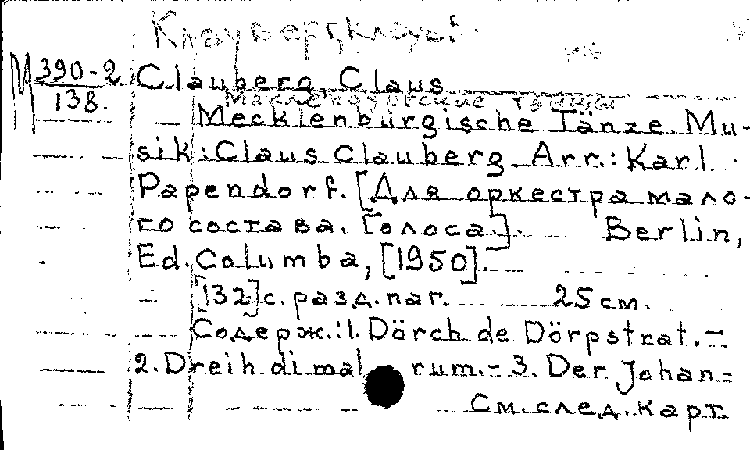 Клауберг, Клаус
М 390-2
138.
Clauberg, Claus
Мекленбургские танцы
Mecklenburgische Tänze. Mu-
sik: Claus Clauberg. Arr.: Karl
Papendorf. [Для оркестра мало-
го состава. Голоса]. Berlin,
Ed. Columba, [1950].
[132]с. разд. паг. 25 см.
Содерж.: 1. Dörch de Dörpstrat. –
2. Dreih di mal rum. – 3. Der Johan-
См. след. карт